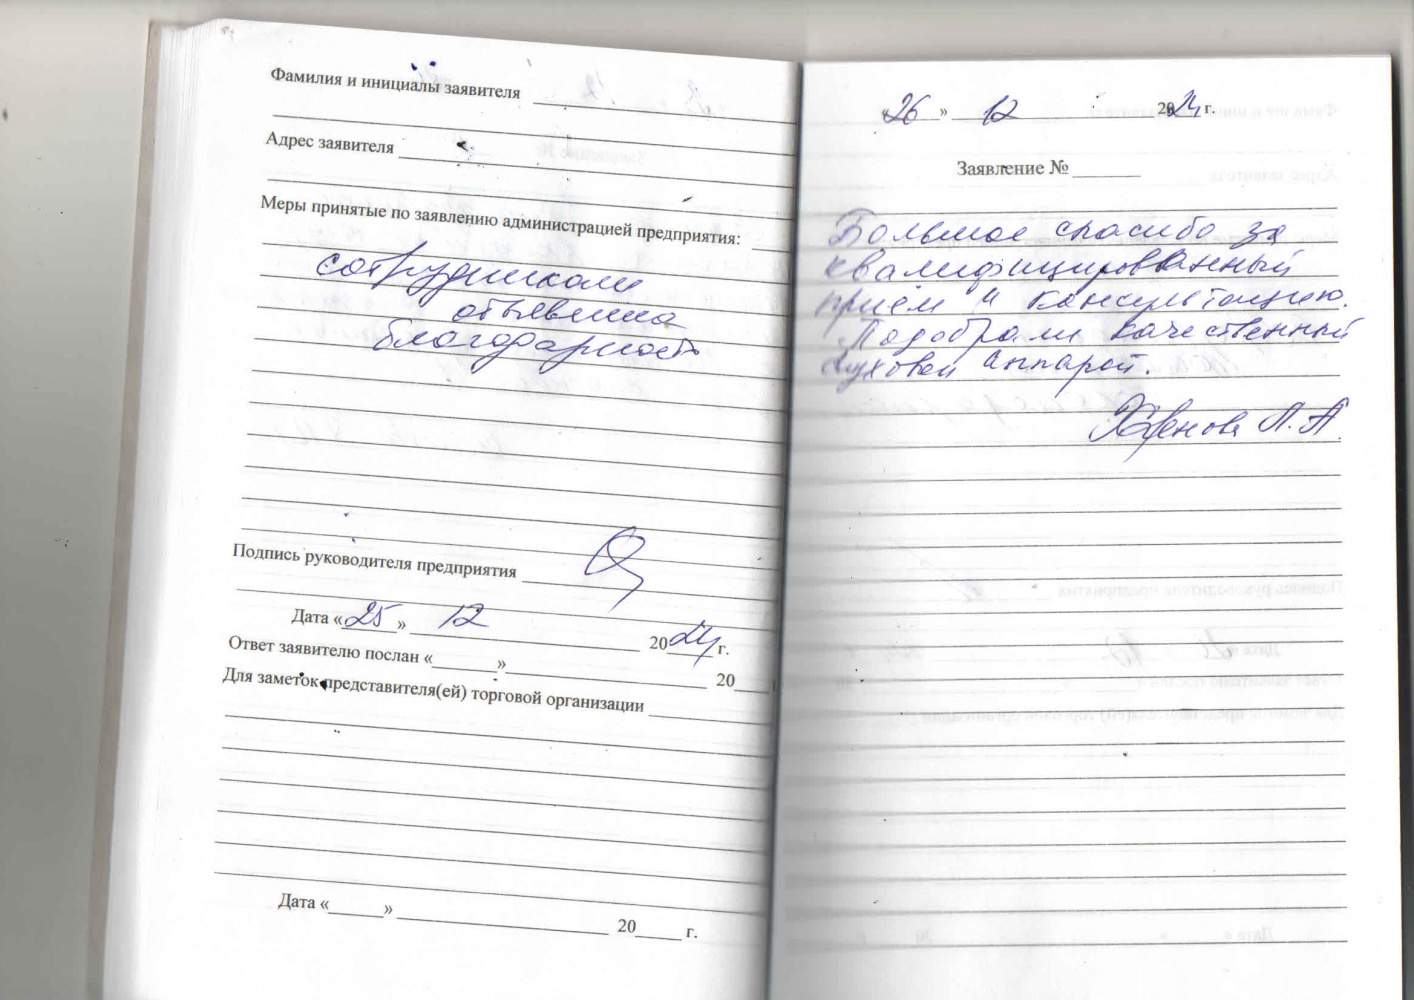 Фамилия и инициалы заявителя
Адрес заявителя
Меры принятые по заявлению администрацией предприятия:
сотрудникам
объявлена
благодарность
Подпись руководителя предприятия
Дата «25» 12 2024 г.
Ответ заявителю послан «______» 20____
Для заметок представителя(ей) торговой организации
Дата «______» 20_____ г.
«26» 12 2024 г.
Заявление №
Большое спасибо за
квалифицированный
приём и консультацию.
Подобрали качественный
слуховой аппарат.
Л. А.